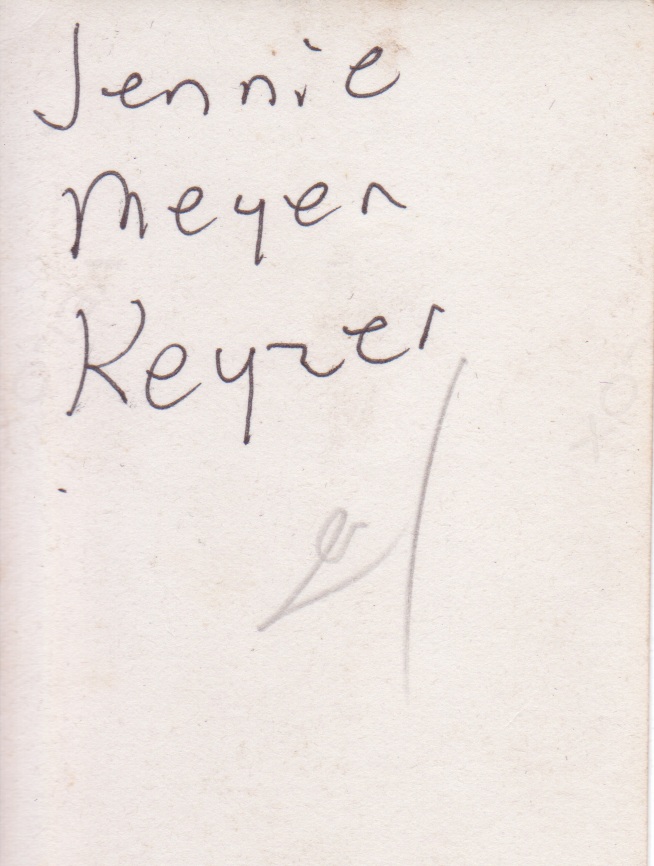 Jennie
Meyer
Keyzer